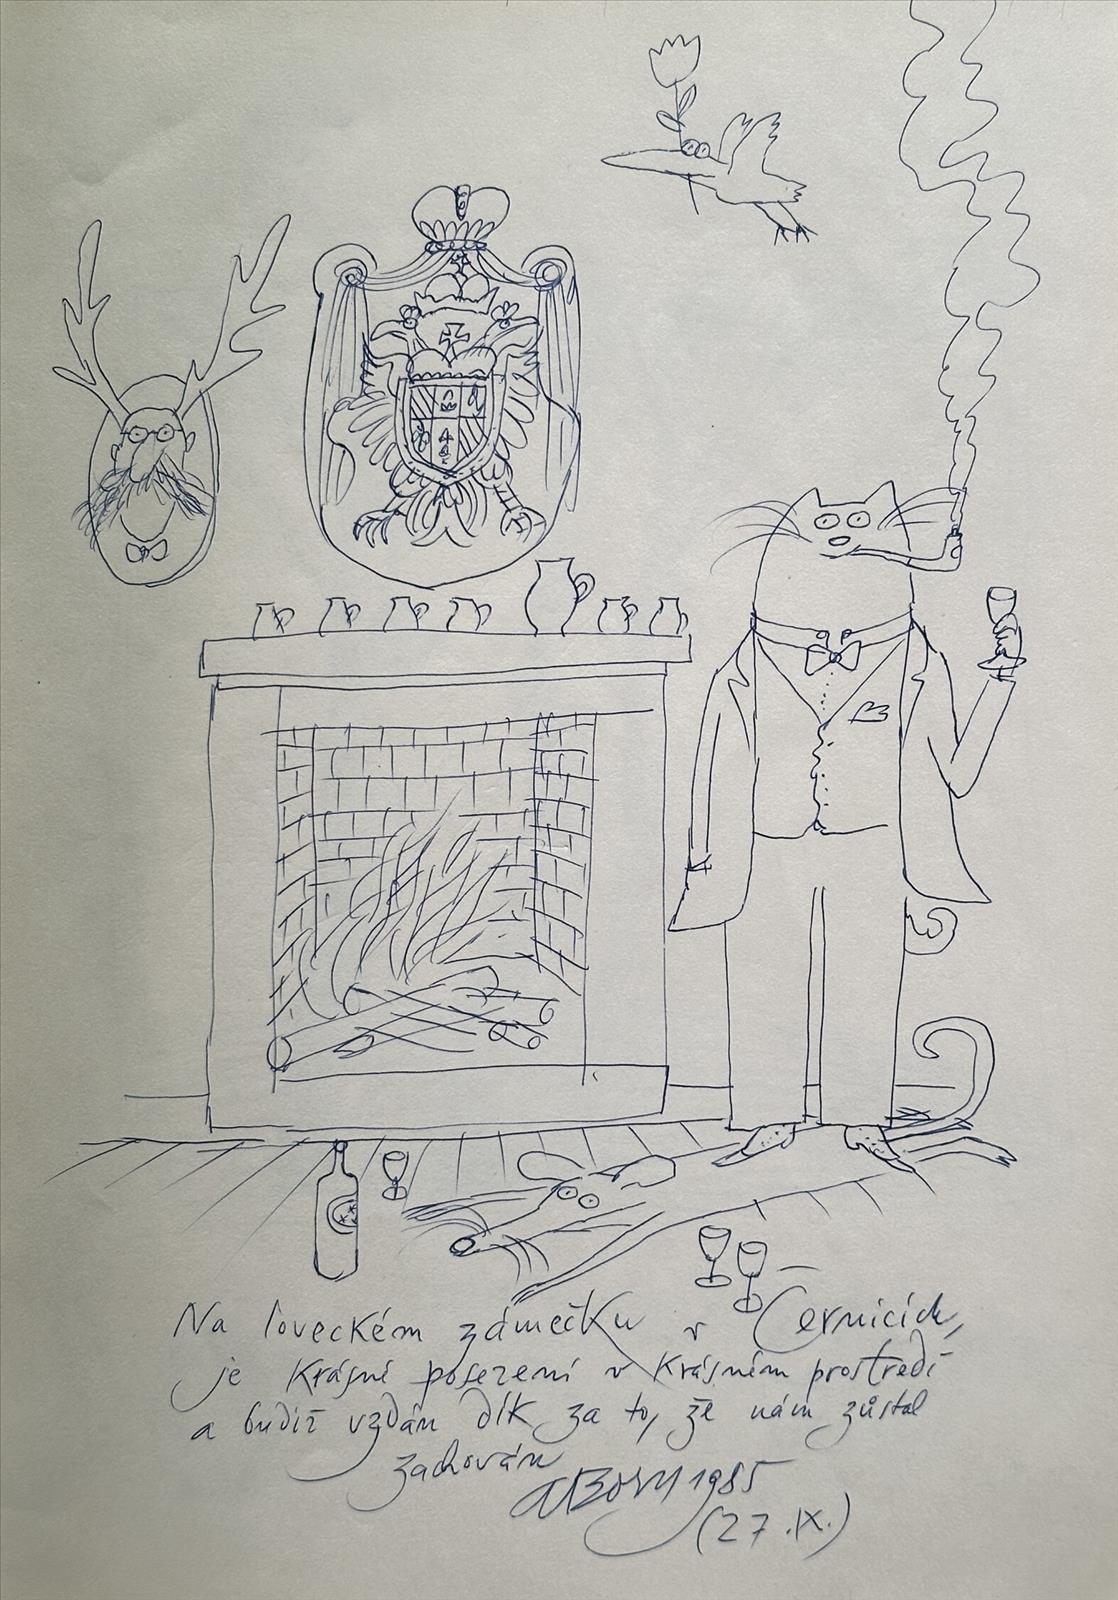 Na loveckém zámečku v Černicích,
je krásné posezení v krásném prostředí
a budiž vzdán dík za to, že nám zůstal
zachován
A BORN 1985
(27.IX.)